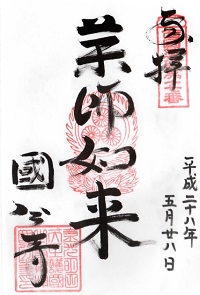 奉拝
平成二十八年
五月廿八日
薬師如来
國分寺